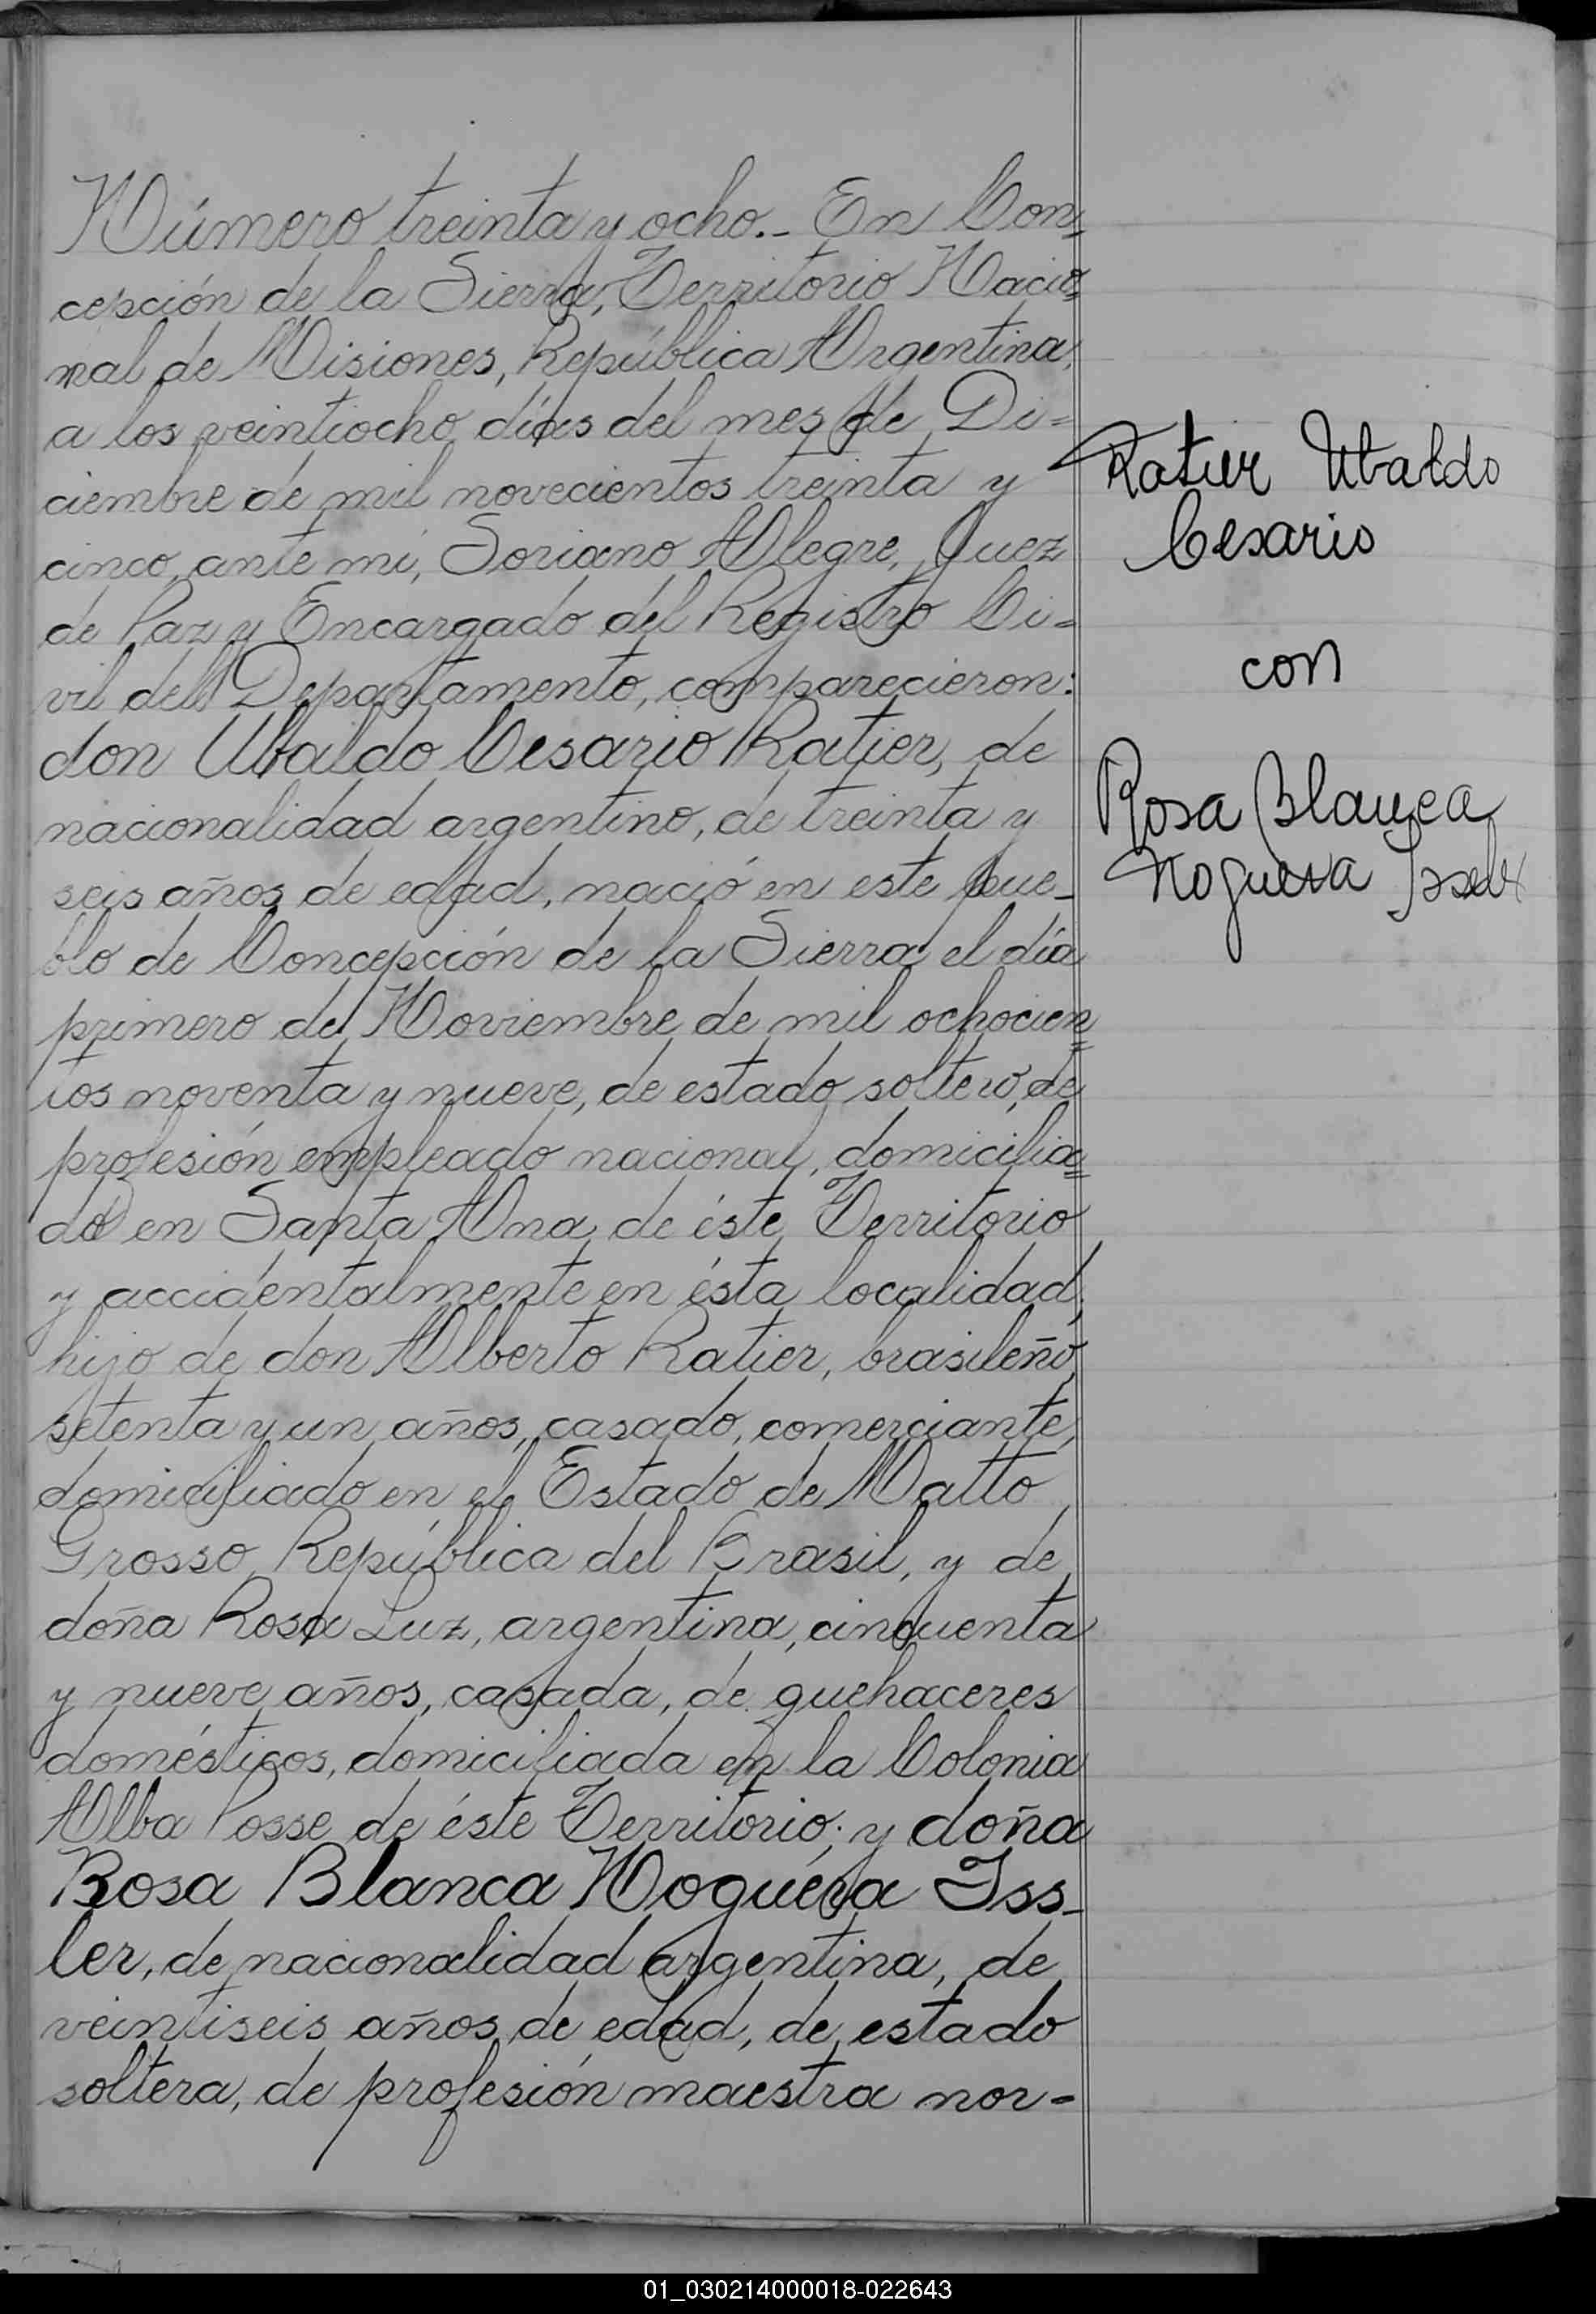 Número treinta y ocho.- En Con=
cepción de la Sierra, Territorio Nacio=
nal de Misiones, República Argentina,
a los veintiocho días del mes de Di=
ciembre de mil novecientos treinta y
cinco, ante mí, Soriano Alegre, Juez
de Paz y Encargado del Registro Ci=
vil del Departamento, comparecieron:
don Ubaldo Cesario Ratier, de
nacionalidad argentino, de treinta y
seis años de edad, nació en este pue-
blo de Concepción de la Sierra el día
primero de Noviembre de mil ochocien=
tos noventa y nueve, de estado soltero, de
profesión empleado nacional, domicilia=
do en Santa Ana de éste Territorio
y accidentalmente en ésta localidad,
hijo de don Alberto Ratier, brasileño,
setenta y un años, casado, comerciante,
domiciliado en el Estado de Matto
Grosso, República del Brasil, y de
doña Rosa Luz, argentina, cincuenta
y nueve años, casada, de quehaceres
domésticos, domiciliada en la Colonia
Alba Posse de éste Territorio; y doña
Rosa Blanca Noguéra Iss-
ler, de nacionalidad argentina, de
veintiseis años de edad, de estado
soltera, de profesión maestra nor=
Ratier Ubaldo
Cesario
con
Rosa Blanca
Noguera Issler
01_030214000018-022643